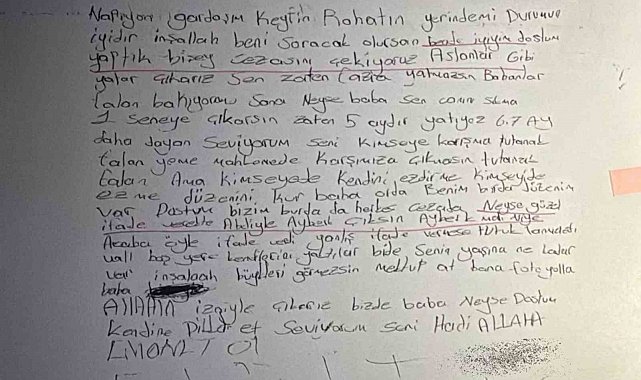 Napıyon gardaşım Keyfin Rohatın yerindemi Durumun
iyidir inşallah beni Soracak olursan bende iyiyim dostum
yaptık bizey cezasını çekiyoruz Aslanlar Gibi
yatar çıkarız Sen zaten fazla yatmazsın Babanlar
falan bakıyorsun Sana Neyse baba sen canın sıkma
1 seneye çıkarsın zaten 5 aydır yatıyoz 6.7 Ay
daha dayan Seviyorum seni Kimseye karşıma tutanak
falan yeme mahkemede karşımıza çıkmasın tutanak
falan Ama kimseyede Kendini ezdirme kimseyide
ezme düzenini kur baba orda Benim burda düzenim
var Dostum bizim burda da herkes cezada Neyse güzel
ifade Abiyle Aybeik Çıksın Aybeik niye
Acaba öyle ifade verdi yanlış ifade vermese tutuk
hep yere yaptılar bide Senin yaşına ne kadar
var inşalaah büyüleri görmezsin mektup at bana foto yolla
baba
AllAHIN izniyle çıkarız bizde baba Neyse Dostum
Kendine Dikkat et Seviyorum seni Hadi ALLAHA
EMANET Ol